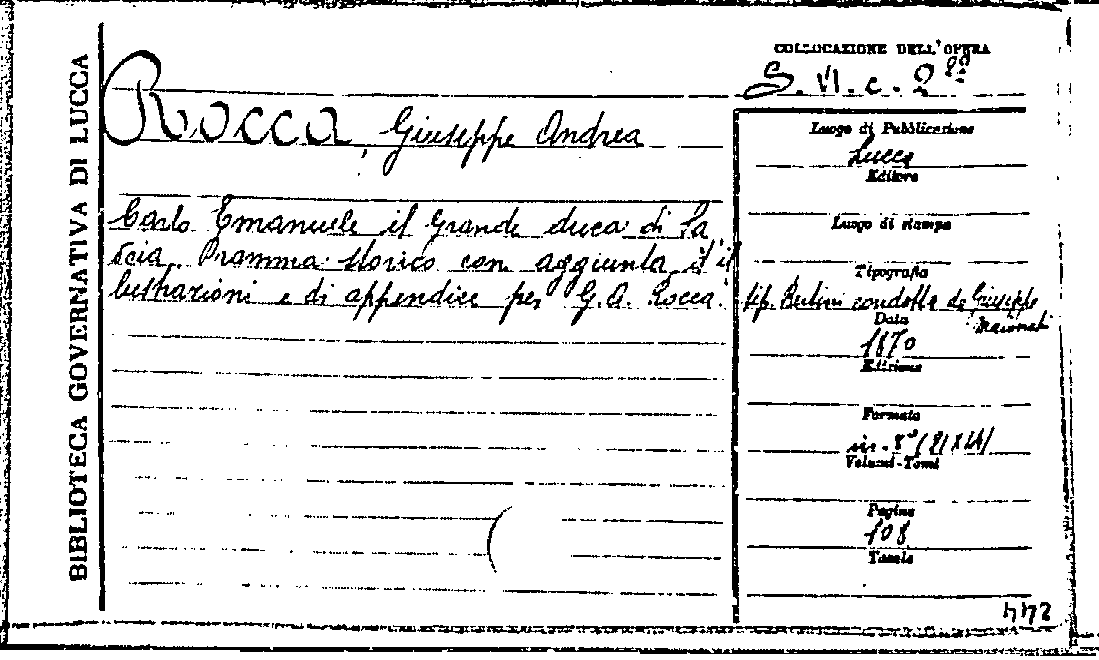 BIBLIOTECA GOVERNATIVA DI LUCCA
COLLOCAZIONE DELL'OPERA
S. VI. c. 2
Rocca, Giuseppe Andrea
Carlo Emanuele il Grande duca di Sa
voia. Dramma storico con aggiunta d'il
lustrazioni e di appendice per G. A. Rocca.
Luogo di Pubblicazione
Lucca
Editore
Luogo di stampa
Tipografia
tip. Bertini condotta da Giuseppe
Data
1870
Edizione
Formato
in-8°
Volumi-Tomi
Pagine
108
Tavole